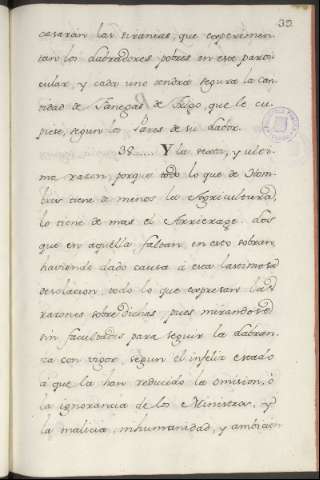 39
cesarán las tiranías, que experimen-
tan los Labradores pobres en este parti-
cular, y cada uno tendrá segura la can-
tidad de Fanegas de Trigo, que le cu-
piese, segun los Pares de su Labor.
38...... Y la sexta, y ulti-
ma razon, porque todo lo que de Hom-
bres tiene de menos la Agricultura,
lo tiene de mas el Arrierage: dos
que en aquella faltan, en esto sobran,
haviendo dado causa á esta lastimosa
desolacion, todo lo que expresan las
razones sobre dichas, pues mirandose
sin facultades para seguir la Labran-
za con vigor, segun el infeliz estado
á que la han reducido la omision, ó
la ignorancia de los Ministros, y
la malicia, inhumanidad, y ambicion